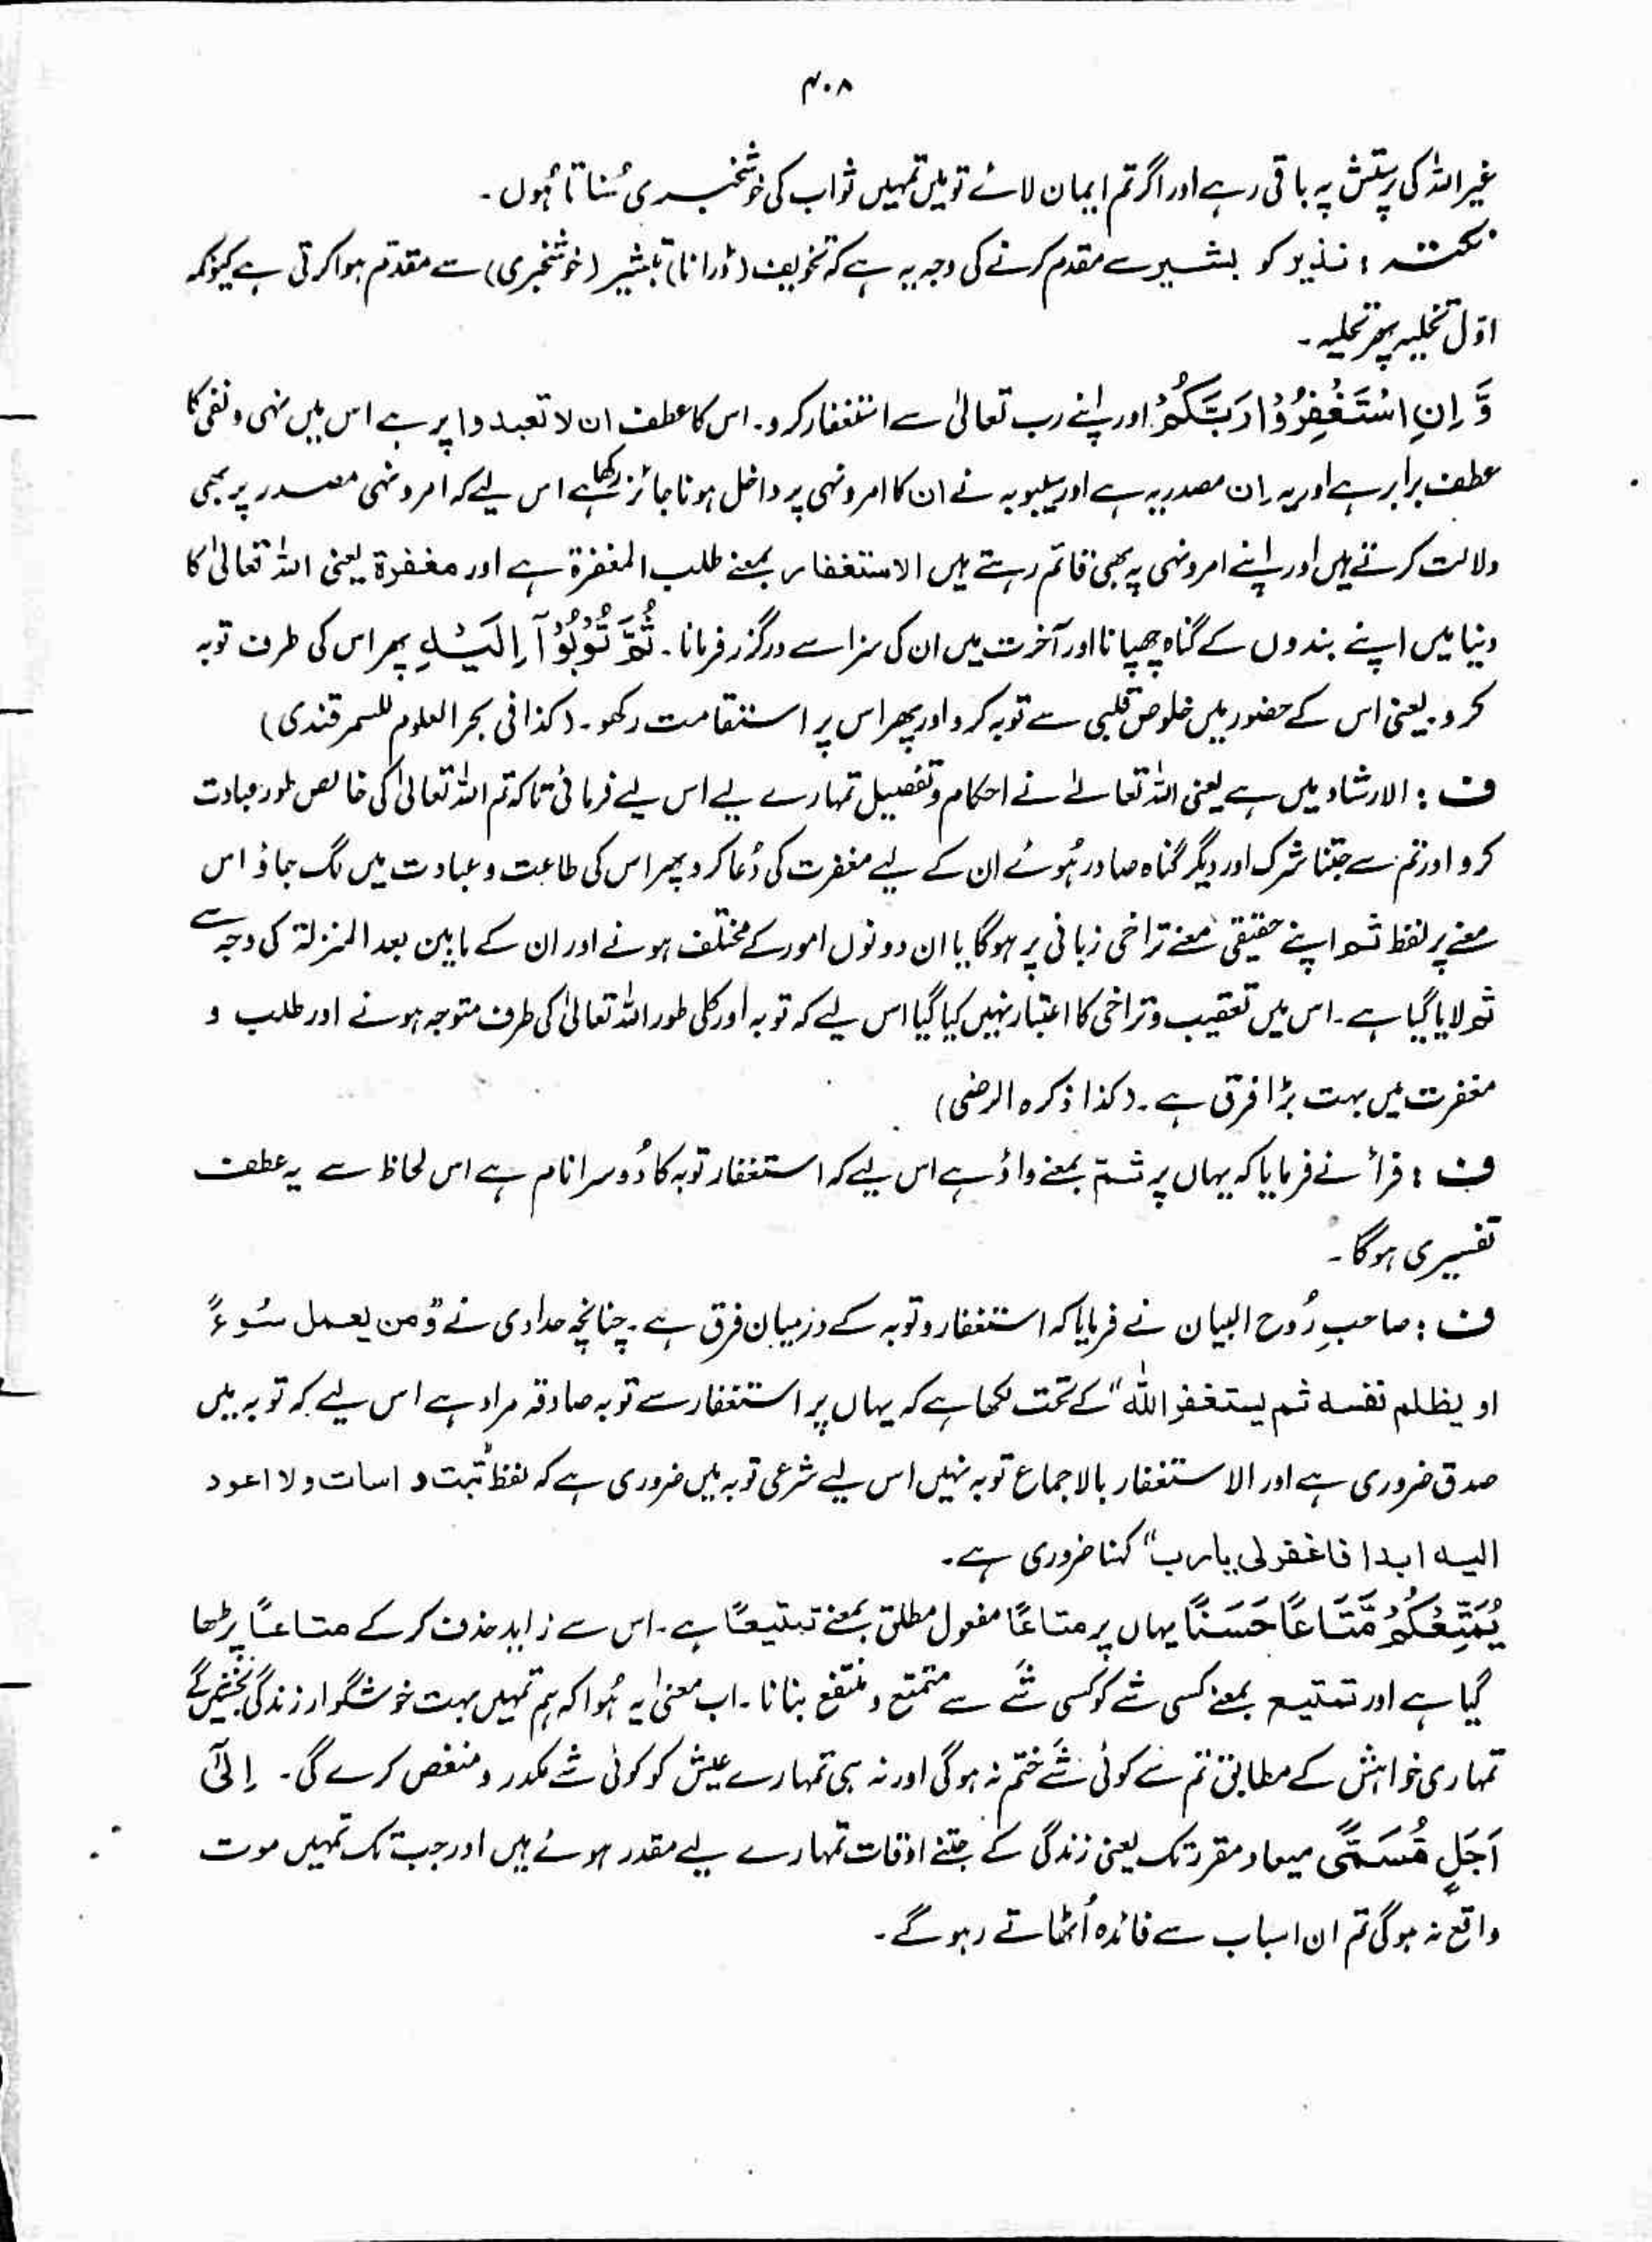 ۴۰۸
غیر اللہ کی پرستش پہ باقی رہے اور اگر تم ایمان لائے تو میں تمہیں ثواب کی خوشخبری سُناتا ہُوں ۔
نکتہ : نذیر کو بشیر سے مقدم کرنے کی وجہ یہ ہے کہ تخویف (ڈرانا) تبشیر (خوشخبری) سے مقدم ہوا کرتی ہے کیونکہ
اوّل تخلیہ پھر تحلیہ ۔
وَّ اِنِ اسْتَغْفِرُوْا رَبَّكُمْ اور اپنے رب تعالیٰ سے استغفار کرو۔ اس کا عطف ان لا تعبدوا پر ہے اس میں نہی و نفی کا
عطف برابر ہے اور یہ ان مصدریہ ہے اور سیبویہ نے ان کا امر و نہی پر داخل ہونا جائز رکھا ہے اس لیے کہ امر و نہی مصدر پر بھی
دلالت کرتے ہیں اور اپنے امر و نہی پہ بھی قائم رہتے ہیں الاستغفار بمعنے طلب المغفرۃ ہے اور مغفرۃ یعنی اللہ تعالیٰ کا
دنیا میں اپنے بندوں کے گناہ چھپانا اور آخرت میں ان کی سزا سے درگزر فرمانا ۔ ثُمَّ تُوْبُوْآ اِلَيْهِ پھر اس کی طرف توبہ
کرو ۔ یعنی اس کے حضور میں خلوص قلبی سے توبہ کرو اور پھر اس پر استقامت رکھو ۔ (کذا فی بحر العلوم للسمرقندی)
ف : الارشاد میں ہے یعنی اللہ تعالےٰ نے احکام و تفصیل تمہارے لیے اس لیے فرمائی تاکہ تم اللہ تعالیٰ کی خالص طور عبادت
کرو اور تم سے جتنا شرک اور دیگر گناہ صادر ہُوئے ان کے لیے مغفرت کی دُعا کرو پھر اس کی طاعت و عبادت میں لگ جاؤ اس
معنے پر لفظ ثم اپنے حقیقی معنے تراخی زبانی پر ہوگا یا ان دونوں امور کے مختلف ہونے اور ان کے مابین بعد المنزلۃ کی وجہ سے
ثم لایا گیا ہے ۔ اس میں تعقیب و تراخی کا اعتبار نہیں کیا گیا اس لیے کہ توبہ اور کلی طور اللہ تعالیٰ کی طرف متوجہ ہونے اور طلب و
مغفرت میں بہت بڑا فرق ہے ۔ (کذا ذکرہ الرضی)
ف : فرأ نے فرمایا کہ یہاں پر ثمّ بمعنے واؤ ہے اس لیے کہ استغفار توبہ کا دُوسرا نام ہے اس لحاظ سے یہ عطف
تفسیری ہوگا ۔
ف : صاحبِ رُوح البیان نے فرمایا کہ استغفار و توبہ کے درمیان فرق ہے ۔ چنانچہ حدادی نے "ومن یعمل سُوءً
او یظلم نفسہ ثم یستغفر اللّٰہ" کے تحت لکھا ہے کہ یہاں پر استغفار سے توبہ صادقہ مراد ہے اس لیے کہ توبہ میں
صدق ضروری ہے اور الاستغفار بالاجماع توبہ نہیں اس لیے شرعی توبہ میں ضروری ہے کہ لفظ "تبت و اسات و لا اعود
الیہ ابدا فاغفر لی یا رب" کہنا ضروری ہے ۔
يُمَتِّعْكُمْ مَّتَاعًا حَسَنًا یہاں پر متاعًا مفعول مطلق بمعنے تمتیعًا ہے ۔ اس سے زاید حذف کر کے متاعًا پڑھا
گیا ہے اور تمتیع بمعنے کسی شے کو کسی شَے سے متمتع و منتفع بنانا ۔ اب معنیٰ یہ ہُوا کہ ہم تمہیں بہت خوشگوار زندگی بخشیں گے
تمہاری خواہش کے مطابق تم سے کوئی شَے ختم نہ ہوگی اور نہ ہی تمہارے عیش کو کوئی شے مکدر و منغص کرے گی ۔ اِلٰٓى
اَجَلٍ مُّسَمًّى میعاد مقرر تک یعنی زندگی کے جتنے اوقات تمہارے لیے مقدر ہوئے ہیں اور جب تک تمہیں موت
واقع نہ ہوگی تم ان اسباب سے فائدہ اُٹھاتے رہو گے ۔